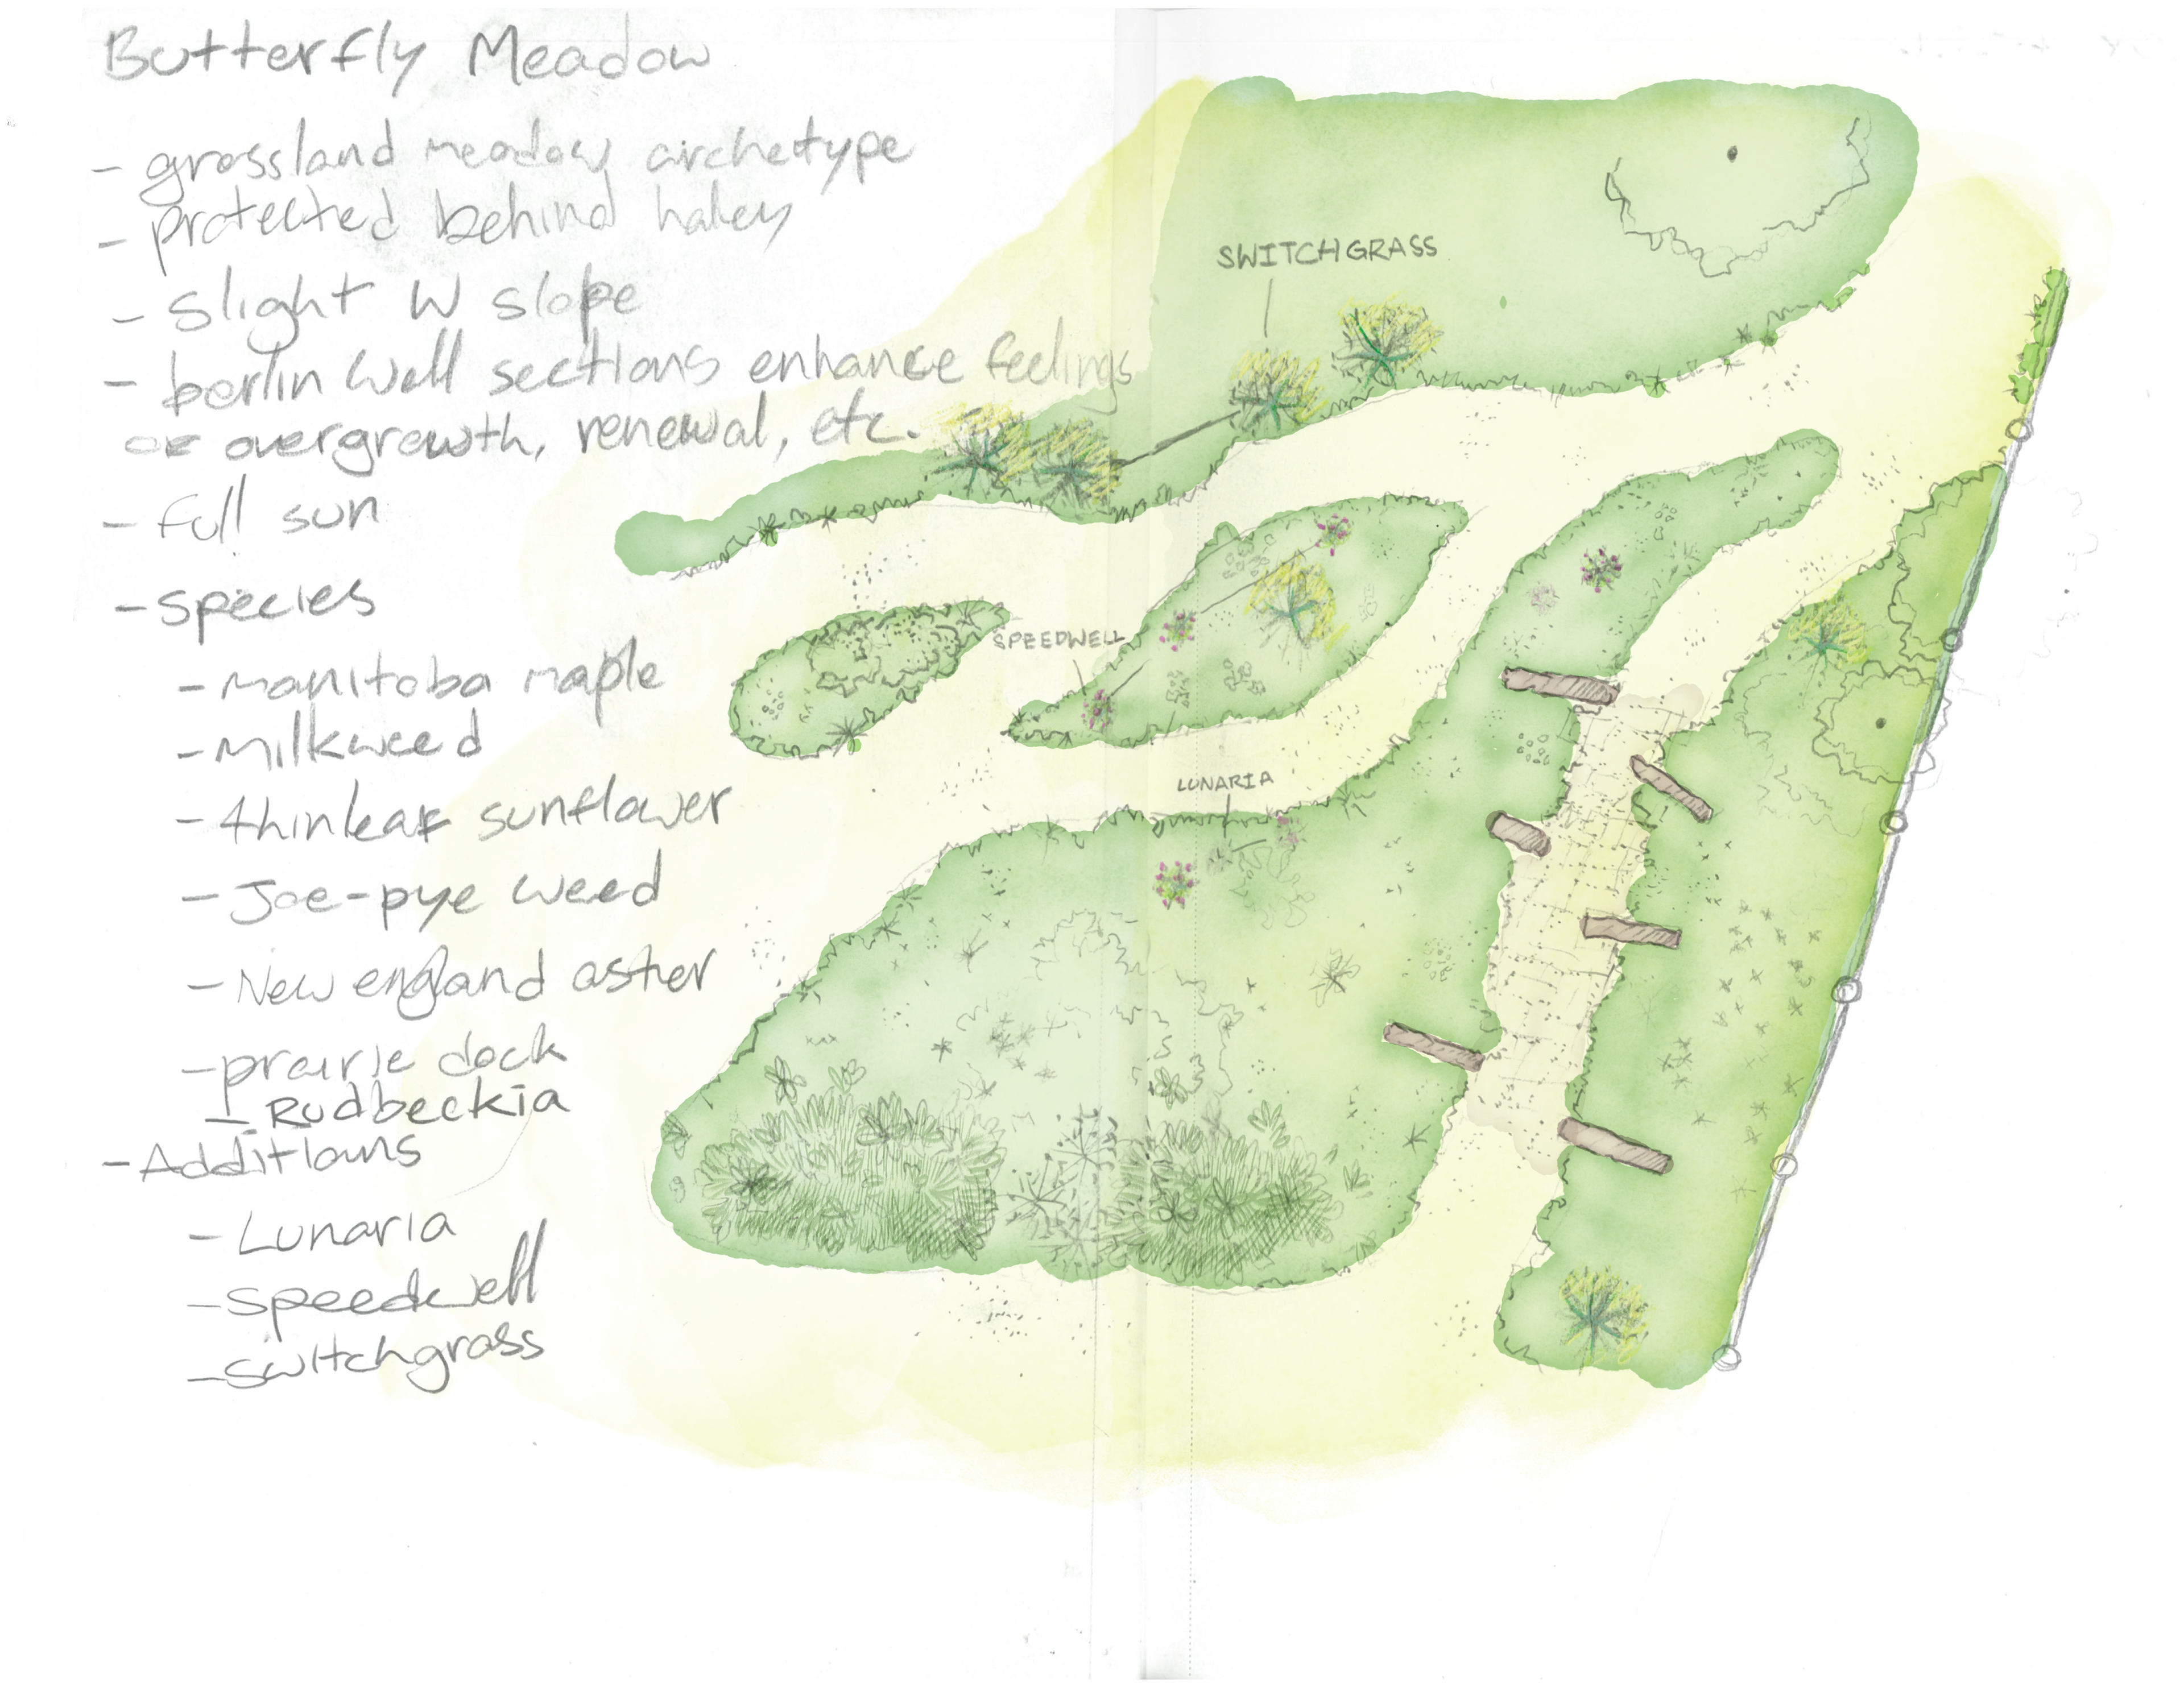 Butterfly Meadow
- grassland meadow archetype
- protected behind haley
- slight W slope
- berlin wall sections enhance feelings
of overgrowth, renewal, etc.
- full sun
- species
- manitoba maple
- milkweed
- thinleaf sunflower
- Joe-pye weed
- New england aster
- prairie dock
- Rudbeckia
- Additions
- Lunaria
- speedwell
- switchgrass
SWITCHGRASS
SPEEDWELL
LUNARIA